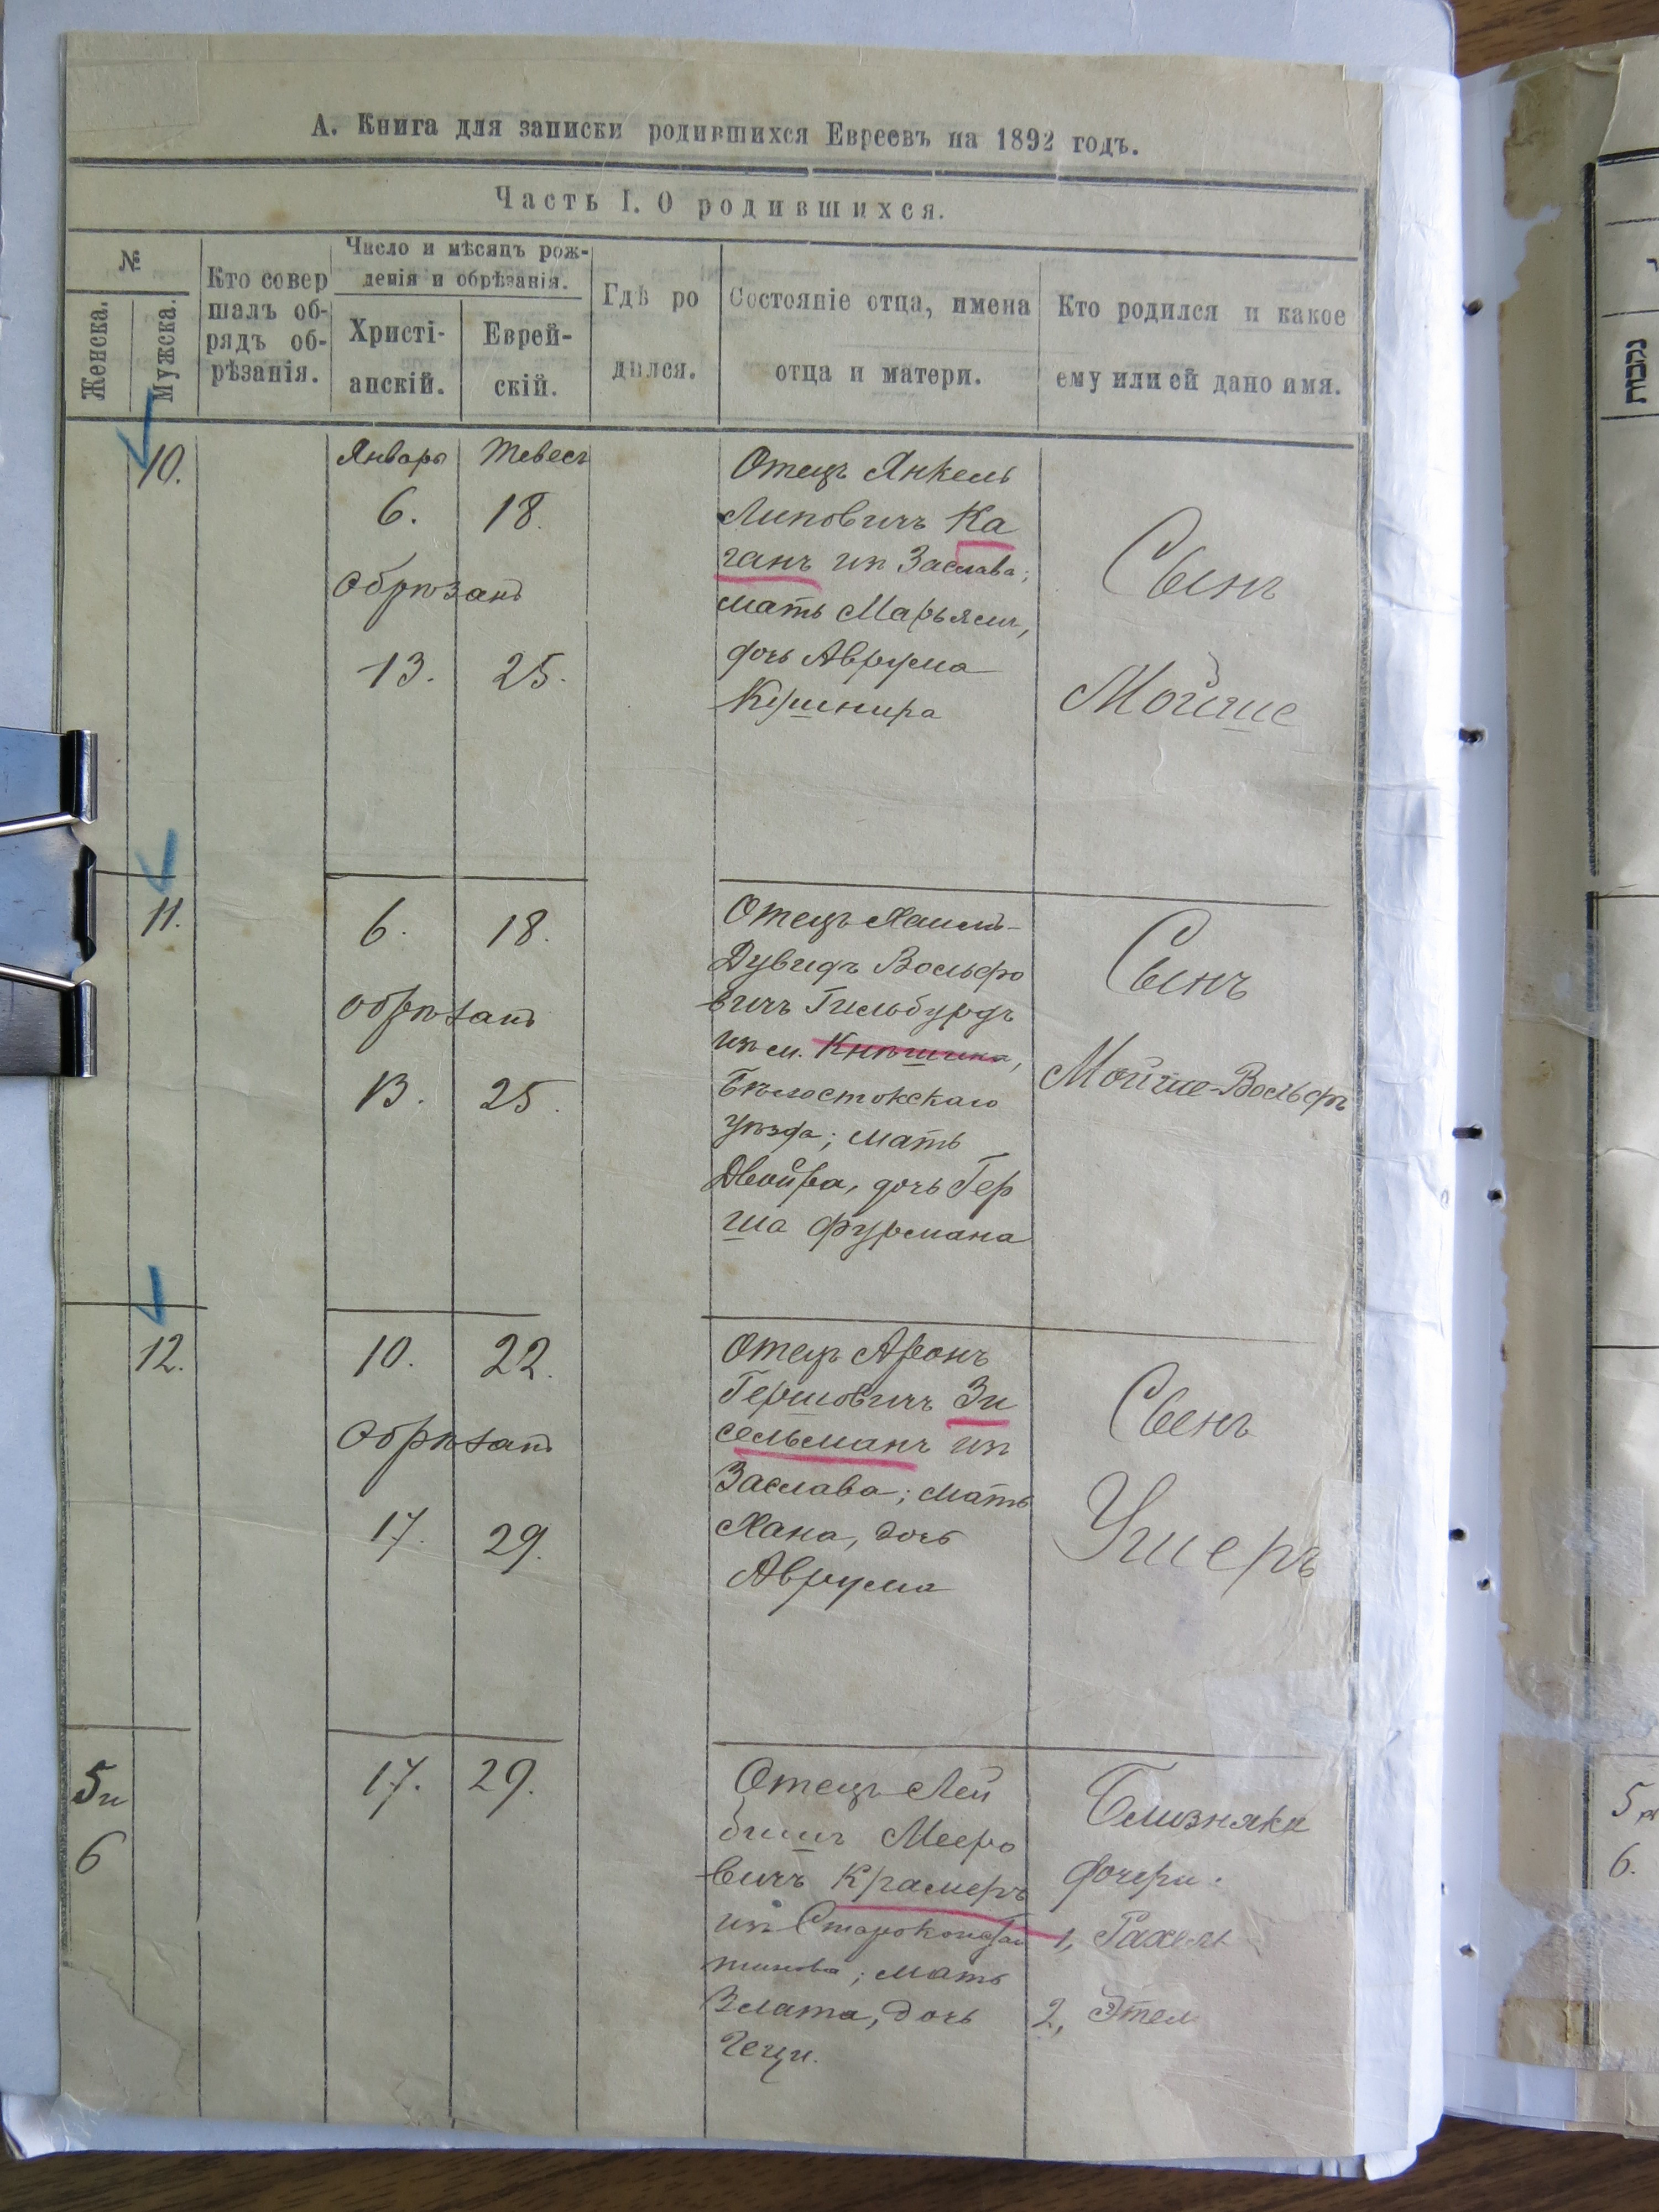 А. Книга для записки родившихся Евреевъ на 1892 годъ.
Часть I. О родившихся.
№
Женска.
Мужска.
Кто совер
шалъ об-
рядъ об-
рѣзанія.
Число и мѣсяцъ рож-
денія и обрѣзанія.
Христі-
анскій.
Еврей-
скій.
Гдѣ ро
дился.
Состояніе отца, имена
отца и матери.
Кто родился и какое
ему или ей дано имя.
10.
Январь Тевесъ
6. 18.
Обрѣзанъ
13. 25.
Отецъ Янкель
Липовичъ Ка
ганъ изъ Заслава;
мать Марьямъ,
дочь Аврума
Кушнира
Сынъ
Мойше
11.
6. 18.
обрѣзанъ
13. 25.
Отецъ Хаимъ-
Дувидъ Вольфо
вичъ Гильбурдъ
изъ м. Кнышина,
Бѣлостокскаго
уѣзда; мать
Двойра, дочь Гер
ша Фурмана
Сынъ
Мойше-Вольфъ
12.
10. 22.
Обрѣзанъ
17. 29.
Отецъ Аронъ
Гершовичъ Зи
сельманъ изъ
Заслава; мать
Хана, дочь
Аврума
Сынъ
Ушеръ
5 и
6
17. 29.
Отецъ Лей
бишъ Мееро
вичъ Крамеръ
изъ Старокостан
тинова; мать
Злата, дочь
Близняки
дочери.
1, Рахель
2, Этель
נקבות
5 и
6.